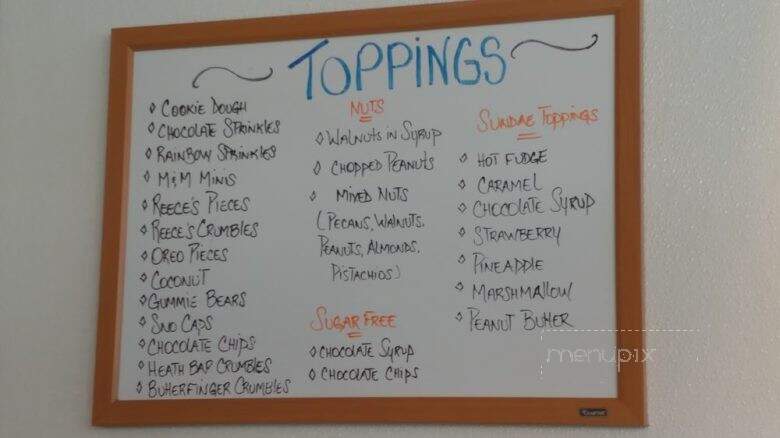 TOPPINGS
◊ COOKIE DOUGH
◊ CHOCOLATE SPRINKLES
◊ RAINBOW SPRINKLES
◊ M&M MINIS
◊ REECE'S PIECES
◊ REECE'S CRUMBLES
◊ OREO PIECES
◊ COCONUT
◊ GUMMIE BEARS
◊ SNO CAPS
◊ CHOCOLATE CHIPS
◊ HEATH BAR CRUMBLES
◊ BUTTERFINGER CRUMBLES
NUTS
◊ WALNUTS IN SYRUP
◊ CHOPPED PEANUTS
◊ MIXED NUTS
(PECANS, WALNUTS,
PEANUTS, ALMONDS,
PISTACHIOS)
SUGAR FREE
◊ CHOCOLATE SYRUP
◊ CHOCOLATE CHIPS
SUNDAE TOPPINGS
◊ HOT FUDGE
◊ CARAMEL
◊ CHOCOLATE SYRUP
◊ STRAWBERRY
◊ PINEAPPLE
◊ MARSHMALLOW
◊ PEANUT BUTTER
menupix